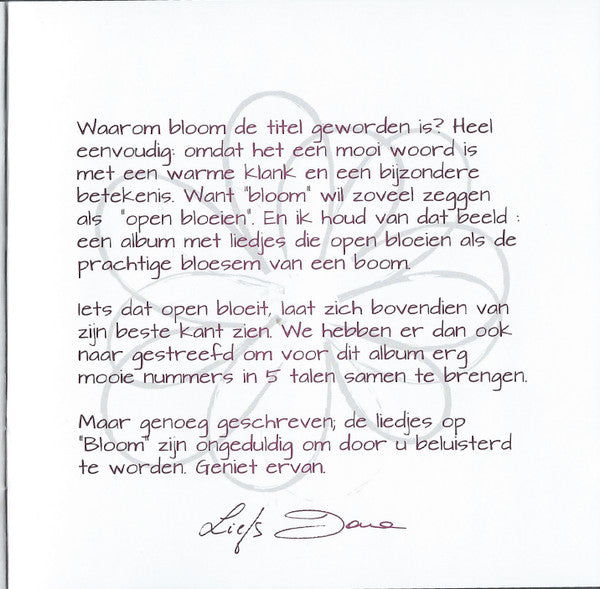 Waarom bloom de titel geworden is? Heel
eenvoudig: omdat het een mooi woord is
met een warme klank en een bijzondere
betekenis. Want "bloom" wil zoveel zeggen
als "open bloeien". En ik houd van dat beeld :
een album met liedjes die open bloeien als de
prachtige bloesem van een boom.
Iets dat open bloeit, laat zich bovendien van
zijn beste kant zien. We hebben er dan ook
naar gestreefd om voor dit album erg
mooie nummers in 5 talen samen te brengen.
Maar genoeg geschreven; de liedjes op
"Bloom" zijn ongeduldig om door u beluisterd
te worden. Geniet ervan.
Liefs Dana